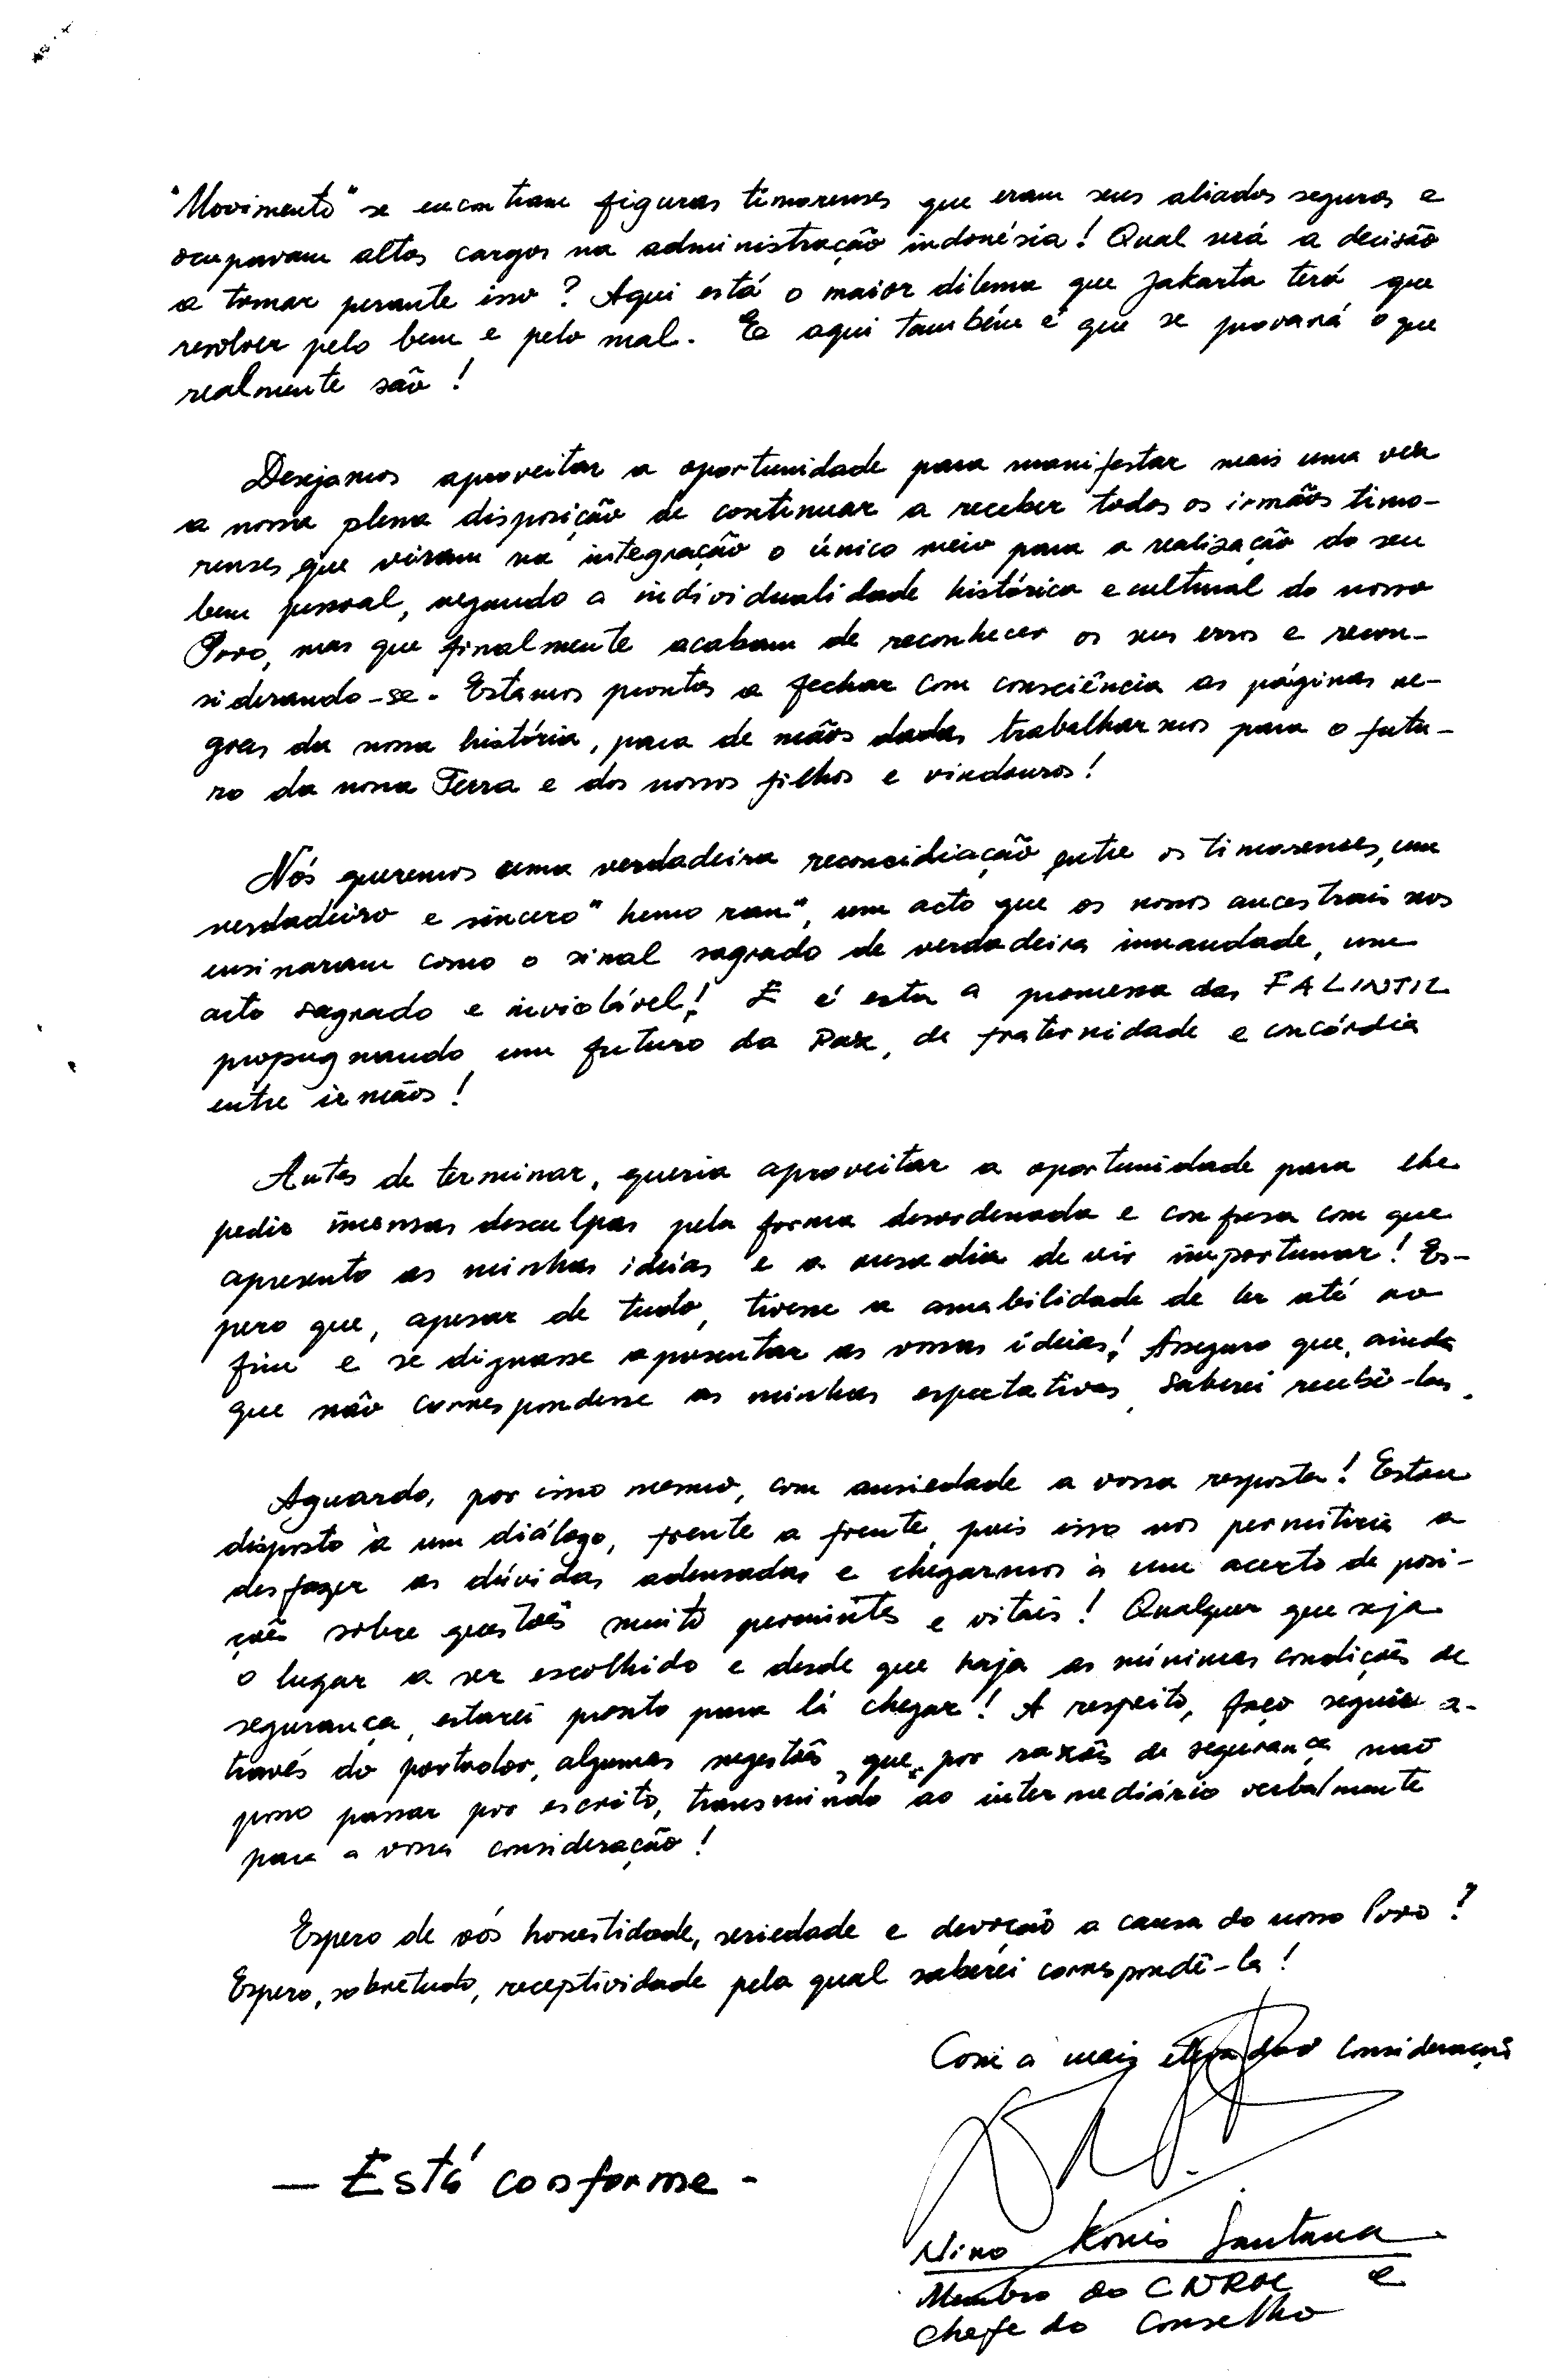 "Movimento" se encontram figuras timorenses que eram seus aliados seguros e
ocupavam altos cargos na administração indonésia! Qual será a decisão
a tomar perante isso? Aqui está o maior dilema que Jakarta terá que
resolver pelo bem e pelo mal. E aqui também é que se provará o que
realmente são!
Desejamos aproveitar a oportunidade para manifestar mais uma vez
a nossa plena disposição de continuar a receber todos os irmãos timo-
renses que viram na integração o único meio para a realização do seu
bem pessoal, negando a individualidade histórica e cultural do nosso
Povo, mas que finalmente acabam de reconhecer os seus erros e recon-
siderando-se. Estamos prontos a fechar com consciência as páginas ne-
gras da nossa história, para de mãos dadas trabalharmos para o futu-
ro da nossa Terra e dos nossos filhos e vindouros!
Nós queremos uma verdadeira reconcidiação entre os timorenses, um
verdadeiro e sincero "hemo ran", um acto que os nossos ancestrais nos
ensinaram como o sinal sagrado de verdadeira irmandade, um
acto sagrado e inviolável! E é esta a promessa das FALINTIL
propugnando um futuro da Paz, de fraternidade e concórdia
entre irmãos!
Antes de terminar, queria aproveitar a oportunidade para lhe
pedir imensas desculpas pela forma desordenada e confusa com que
apresento as minhas ideias e a ousadia de vir importunar! Es-
pero que, apesar de tudo, tivesse a amabilidade de ler até ao
fim e se dignasse apresentar as vossas ideias! Asseguro que, ainda
que não correspondesse as minhas espectativas, saberei recebê-las.
Aguardo, por isso mesmo, com ansiedade a vossa resposta! Estou
disposto à um diálogo, frente a frente, pois isso nos permitiria a
desfazer as dúvidas adensadas e chegarmos à um acerto de posi-
ções sobre questões muito perminites e vitais! Qualquer que seja
o lugar a ser escolhido e desde que haja as mínimas condições de
segurança, estarei pronto para lá chegar! A respeito, faço seguir a-
través do portador, algumas sugestões, que, por razões de segurança não
posso passar por escrito, transmindo ao intermediário verbalmente
para a vossa consideração!
Espero de vós honestidade, seriedade e devoção a causa do nosso Povo!
Espero, sobretudo, receptividade pela qual saberei correspondê-la!
Com a mais elevada consideração
- Está conforme -
Nino Konis Santana
Membro do CNRM e
Chefe do Conselho